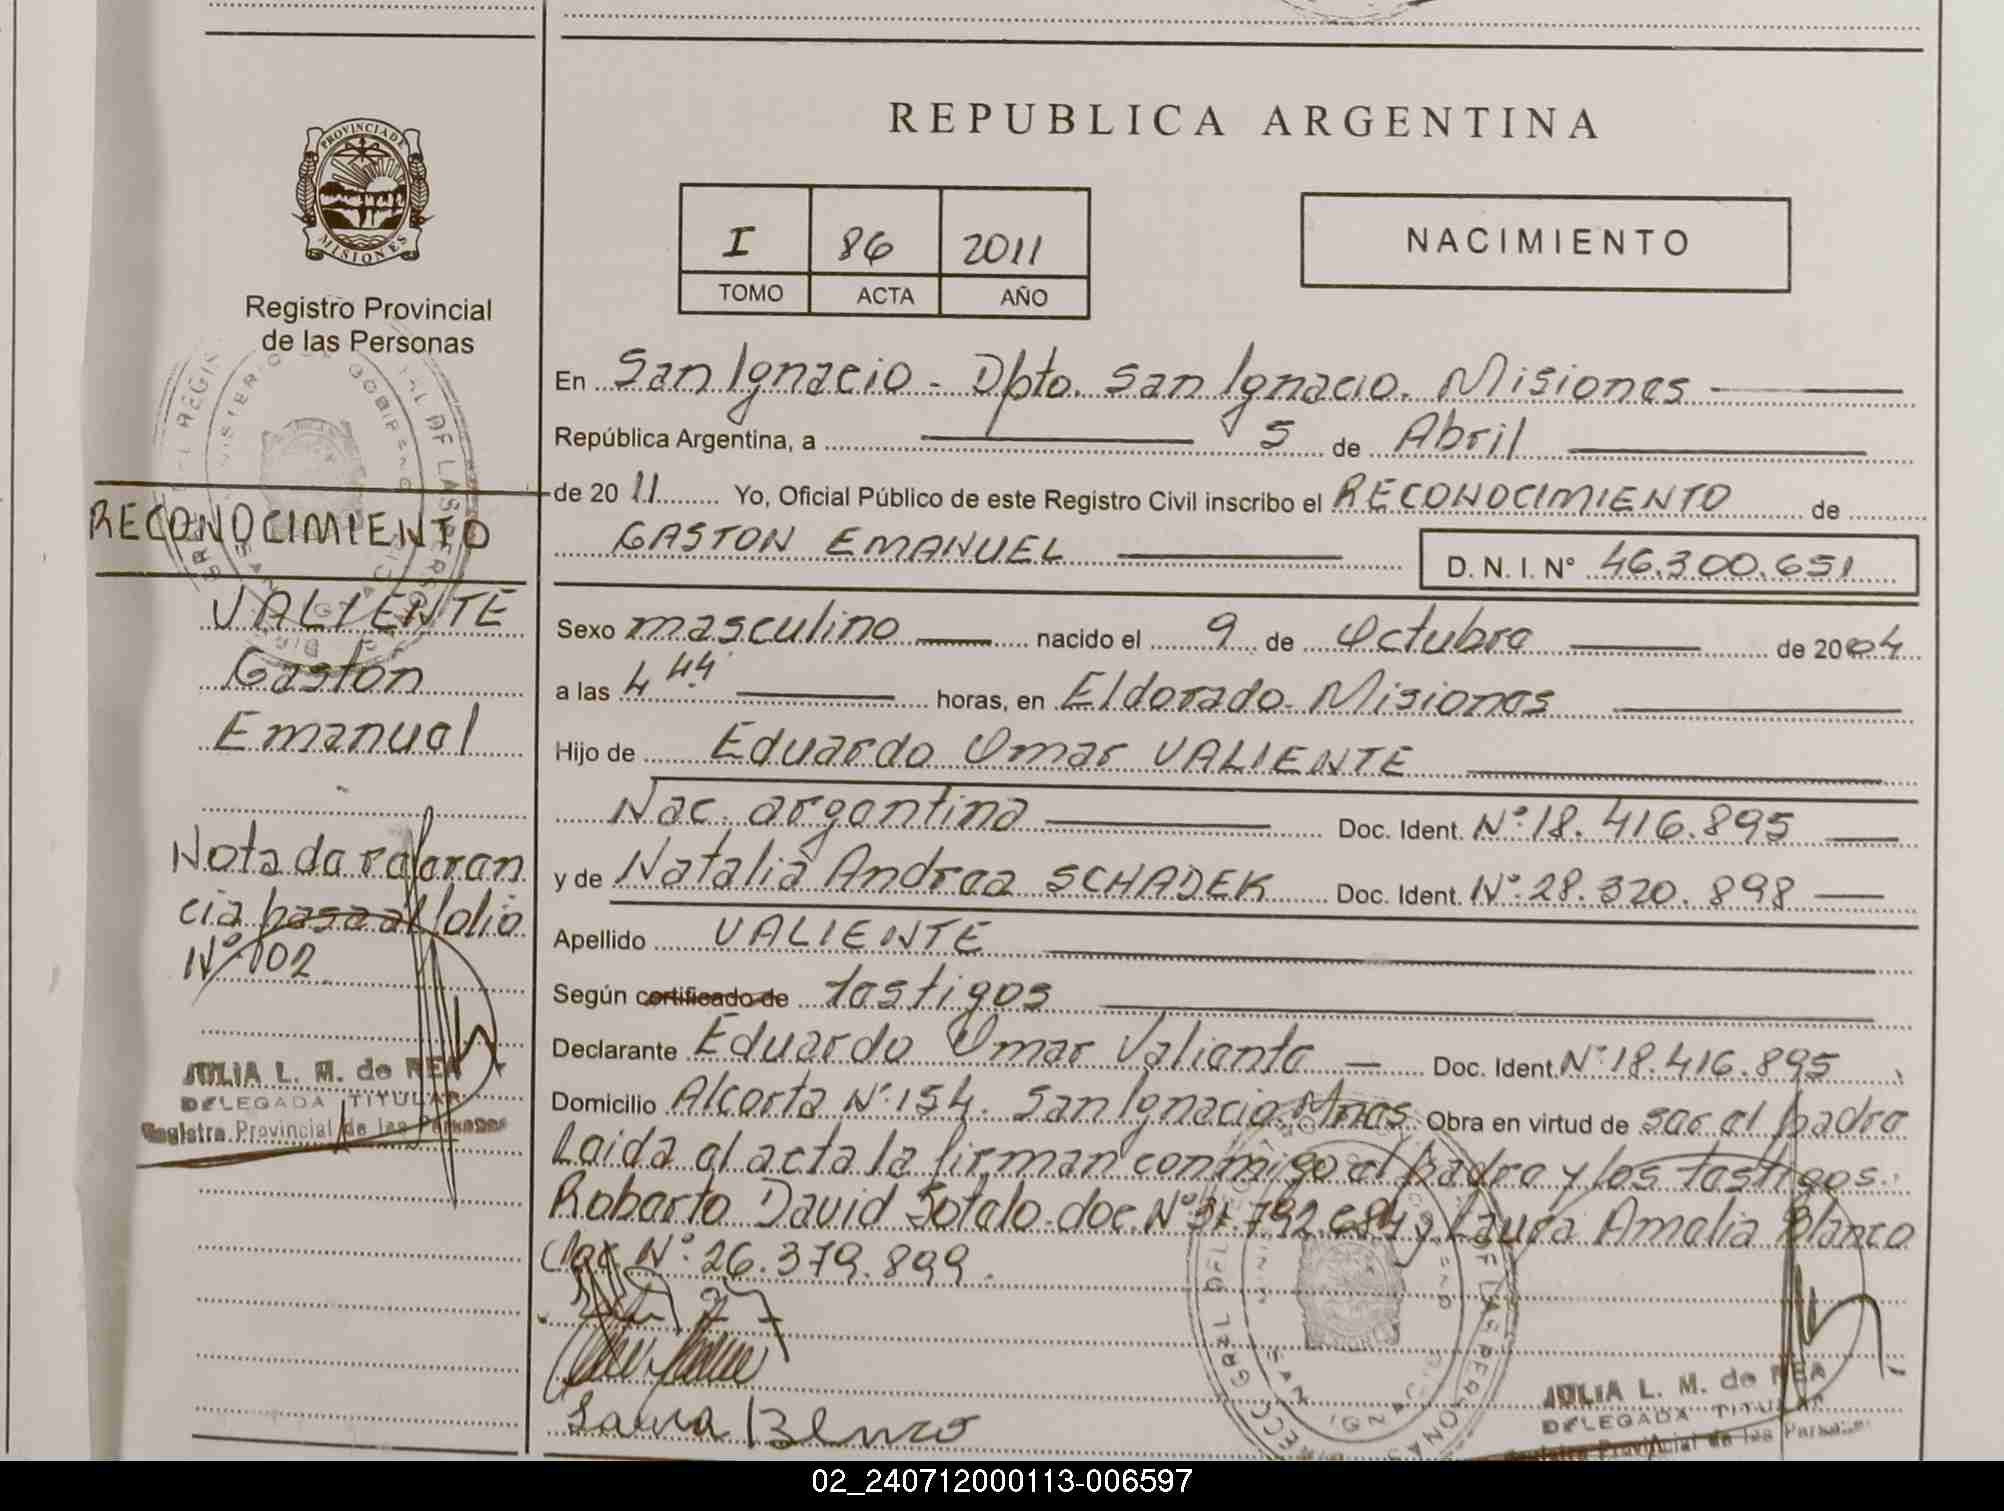 PROVINCIA DE
MISIONES
Registro Provincial
de las Personas
RECONOCIMIENTO
VALIENTE
Gaston
Emanuel
Nota de referen
cia pasa al folio
Nº 002
JULIA L. M. de REA
DELEGADA TITULAR
Registro Provincial de las Personas
REPUBLICA ARGENTINA
I 86 2011
TOMO ACTA AÑO
NACIMIENTO
En San Ignacio - Dpto. San Ignacio. Misiones
República Argentina, a 5 de Abril
de 2011 Yo, Oficial Público de este Registro Civil inscribo el RECONOCIMIENTO de
GASTON EMANUEL D. N. I. Nº 46.300.651
Sexo masculino nacido el 9 de Octubre de 2004
a las 4 44 horas, en Eldorado. Misiones
Hijo de Eduardo Omar VALIENTE
Nac. argentina Doc. Ident. Nº 18.416.895
y de Natalia Andrea SCHADEK Doc. Ident. Nº 28.320.898
Apellido VALIENTE
Según certificado de testigos
Declarante Eduardo Omar Valiente Doc. Ident. Nº 18.416.895
Domicilio Alcorta Nº 154. San Ignacio. Mnes. Obra en virtud de ser el padre
Leida el acta la firman conmigo el padre y los testigos.
Roberto David Sotelo doc. Nº 31.792.684 y Laura Amelia Blanco
doc. Nº 26.379.899.
Laura Blanco
JULIA L. M. de REA
DELEGADA TITULAR
Registro Provincial de las Personas
02_240712000113-006597